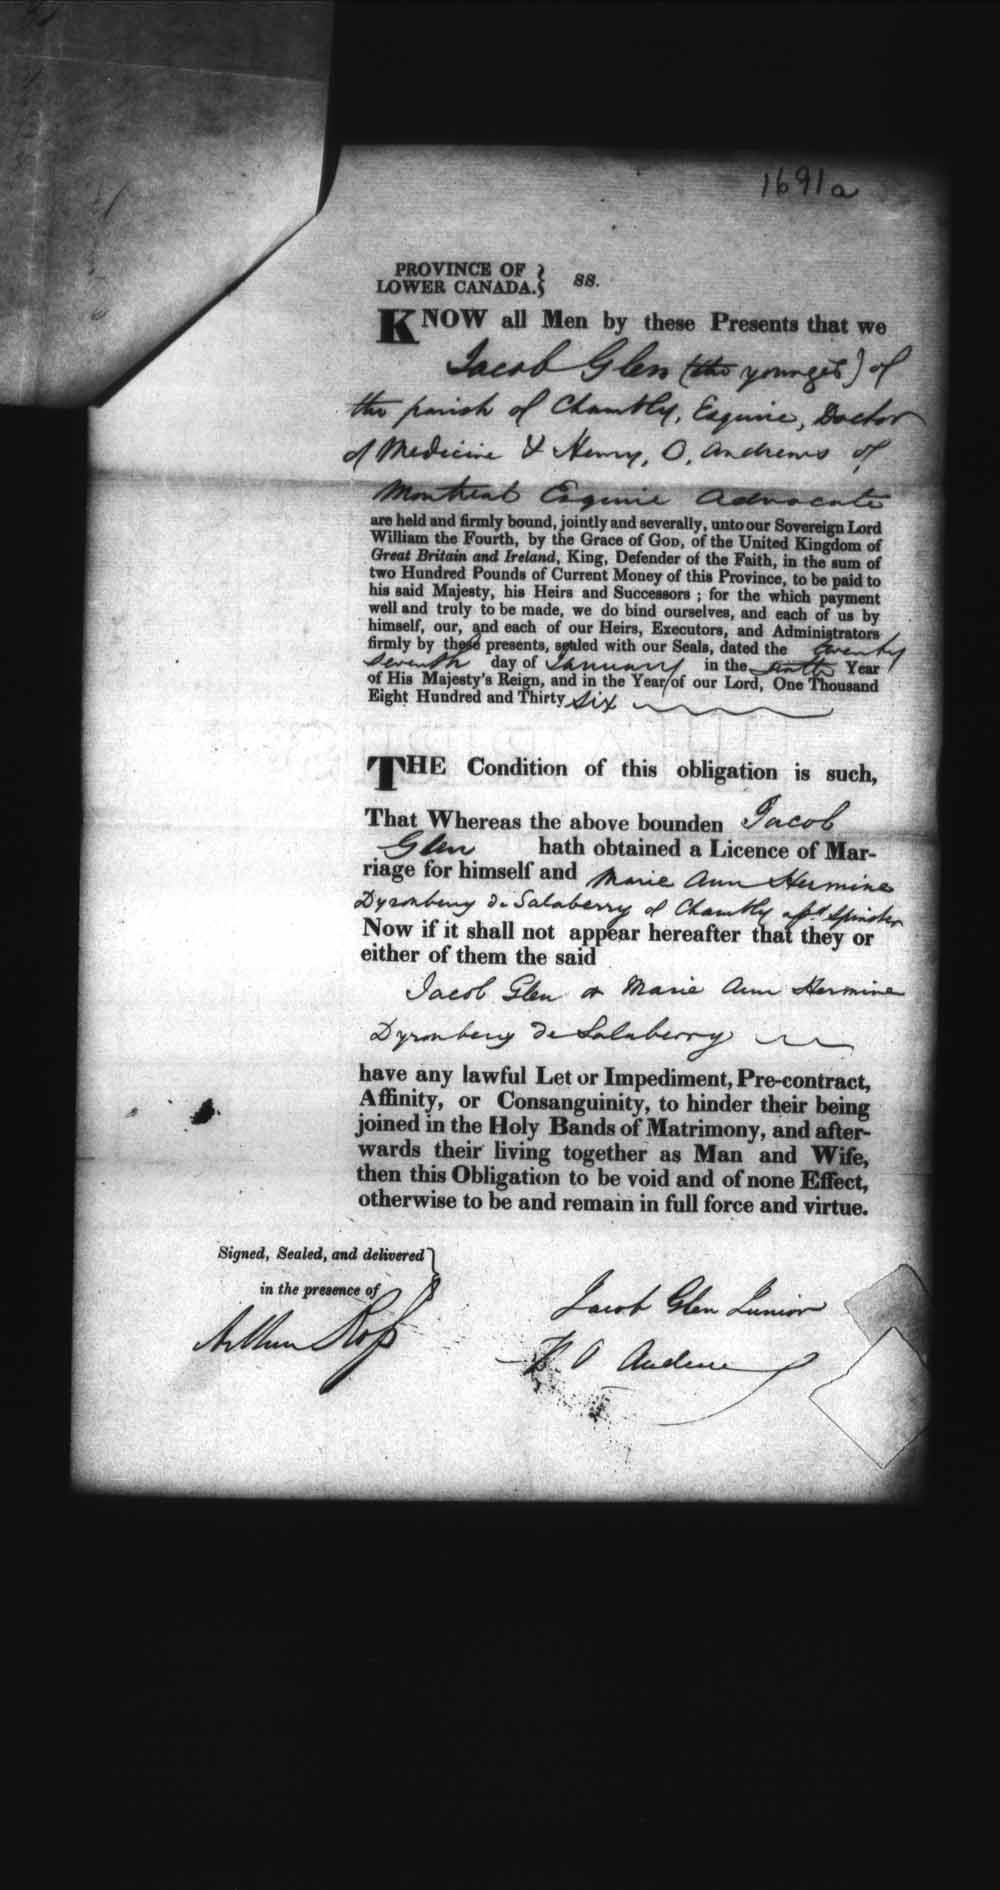 1691a
PROVINCE OF
LOWER CANADA. } ss.
KNOW all Men by these Presents that we
Jacob Glen (the younger) of
the parish of Chambly, Esquire, Doctor
of Medicine & Henry, O, Andrews of
Montreal Esquire Advocate
are held and firmly bound, jointly and severally, unto our Sovereign Lord
William the Fourth, by the Grace of GOD, of the United Kingdom of
Great Britain and Ireland, King, Defender of the Faith, in the sum of
two Hundred Pounds of Current Money of this Province, to be paid to
his said Majesty, his Heirs and Successors ; for the which payment
well and truly to be made, we do bind ourselves, and each of us by
himself, our, and each of our Heirs, Executors, and Administrators
firmly by these presents, sealed with our Seals, dated the twenty
seventh day of January in the Year
of His Majesty's Reign, and in the Year of our Lord, One Thousand
Eight Hundred and Thirty six
THE Condition of this obligation is such,
That Whereas the above bounden Jacob
Glen hath obtained a Licence of Mar-
riage for himself and Marie Ann Hermine
de Salaberry of Chambly Spinster
Now if it shall not appear hereafter that they or
either of them the said
Jacob Glen or Marie Ann Hermine
de Salaberry
have any lawful Let or Impediment, Pre-contract,
Affinity, or Consanguinity, to hinder their being
joined in the Holy Bands of Matrimony, and after-
wards their living together as Man and Wife,
then this Obligation to be void and of none Effect,
otherwise to be and remain in full force and virtue.
Signed, Sealed, and delivered
in the presence of
Arthur Ross
Jacob Glen Junior
H O Andrews